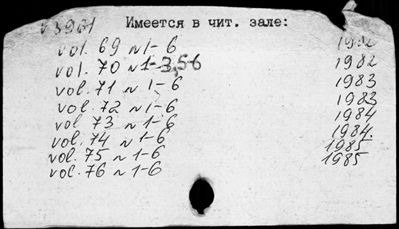 Имеется в чит. зале:
vol. 69 N 1-6 1982
vol. 70 N 1-3,5-6 1982
vol. 71 N 1-6 1983
vol. 72 N 1-6 1983
vol 73 N 1-6 1984
vol. 74 N 1-6 1984.
vol. 75 N 1-6 1985
vol. 76 N 1-6 1985